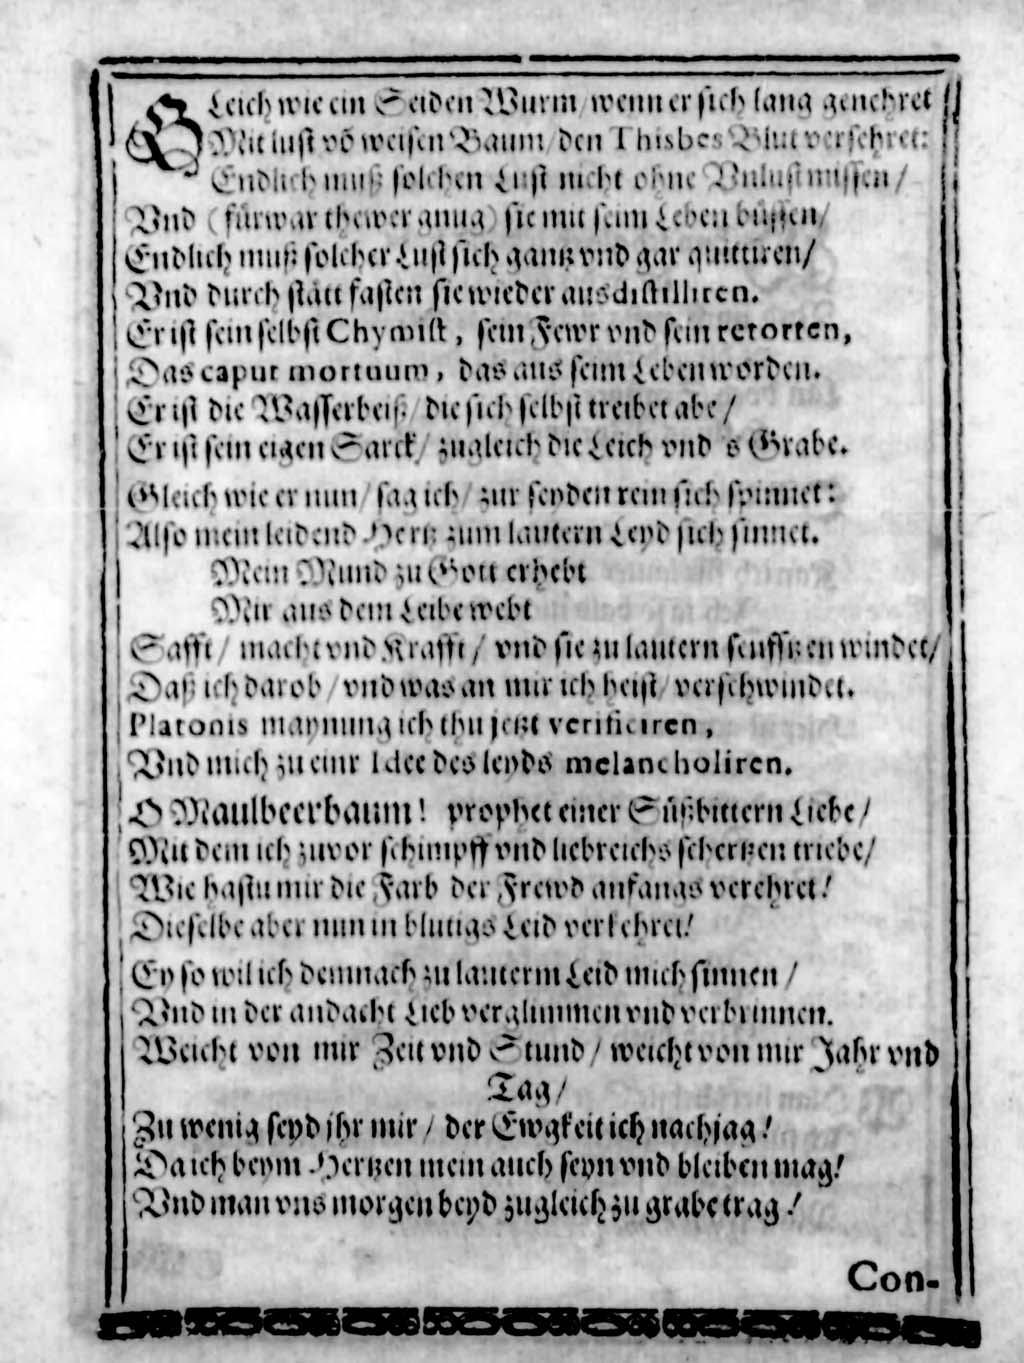 GLeich wie ein Seiden Wurm/ wenn er sich lang genehret
Mit lust võ weisen Baum/ den Thisbes Blut versehret:
Endlich muß solchen Lust nicht ohne Vnlust missen/
Vnd (fürwar thewer gnug) sie mit seim Leben büssen/
Endlich muß solcher Lust sich gantz vnd gar quittiren/
Vnd durch stätt fasten sie wieder ausdistilliren.
Er ist sein selbst Chymist, sein Fewr vnd sein retorten,
Das caput mortuum, das aus seim Leben worden.
Er ist die Wasserbeiß/ die sich selbst treibet abe/
Er ist sein eigen Sarck/ zugleich die Leich vnd 's Grabe.
Gleich wie er nun/ sag ich/ zur seyden rein sich spinnet:
Also mein leidend Hertz zum lautern Leyd sich sinnet.
Mein Mund zu Gott erhebt
Mir aus dem Leibe webt
Safft/ macht vnd Krafft/ vnd sie zu lautern seufftzen windet/
Daß ich darob/ vnd was an mir ich heist/ verschwindet.
Platonis maynung ich thu jetzt verificiren,
Vnd mich zu einr Idee des leyds melancholiren.
O Maulbeerbaum! prophet einer Süßbittern Liebe/
Mit dem ich zuvor schimpff vnd liebreichs schertzen triebe/
Wie hastu mir die Farb der Frewd anfangs verehret!
Dieselbe aber nun in blutigs Leid verkehret!
Ey so wil ich demnach zu lauterm Leid mich sinnen/
Vnd in der andacht Lieb verglimmen vnd verbrinnen.
Weicht von mir Zeit vnd Stund/ weicht von mir Jahr vnd
Tag/
Zu wenig seyd jhr mir/ der Ewgkeit ich nachjag!
Da ich beym Hertzen mein auch seyn vnd bleiben mag!
Vnd man vns morgen beyd zugleich zu grabe trag!
Con-